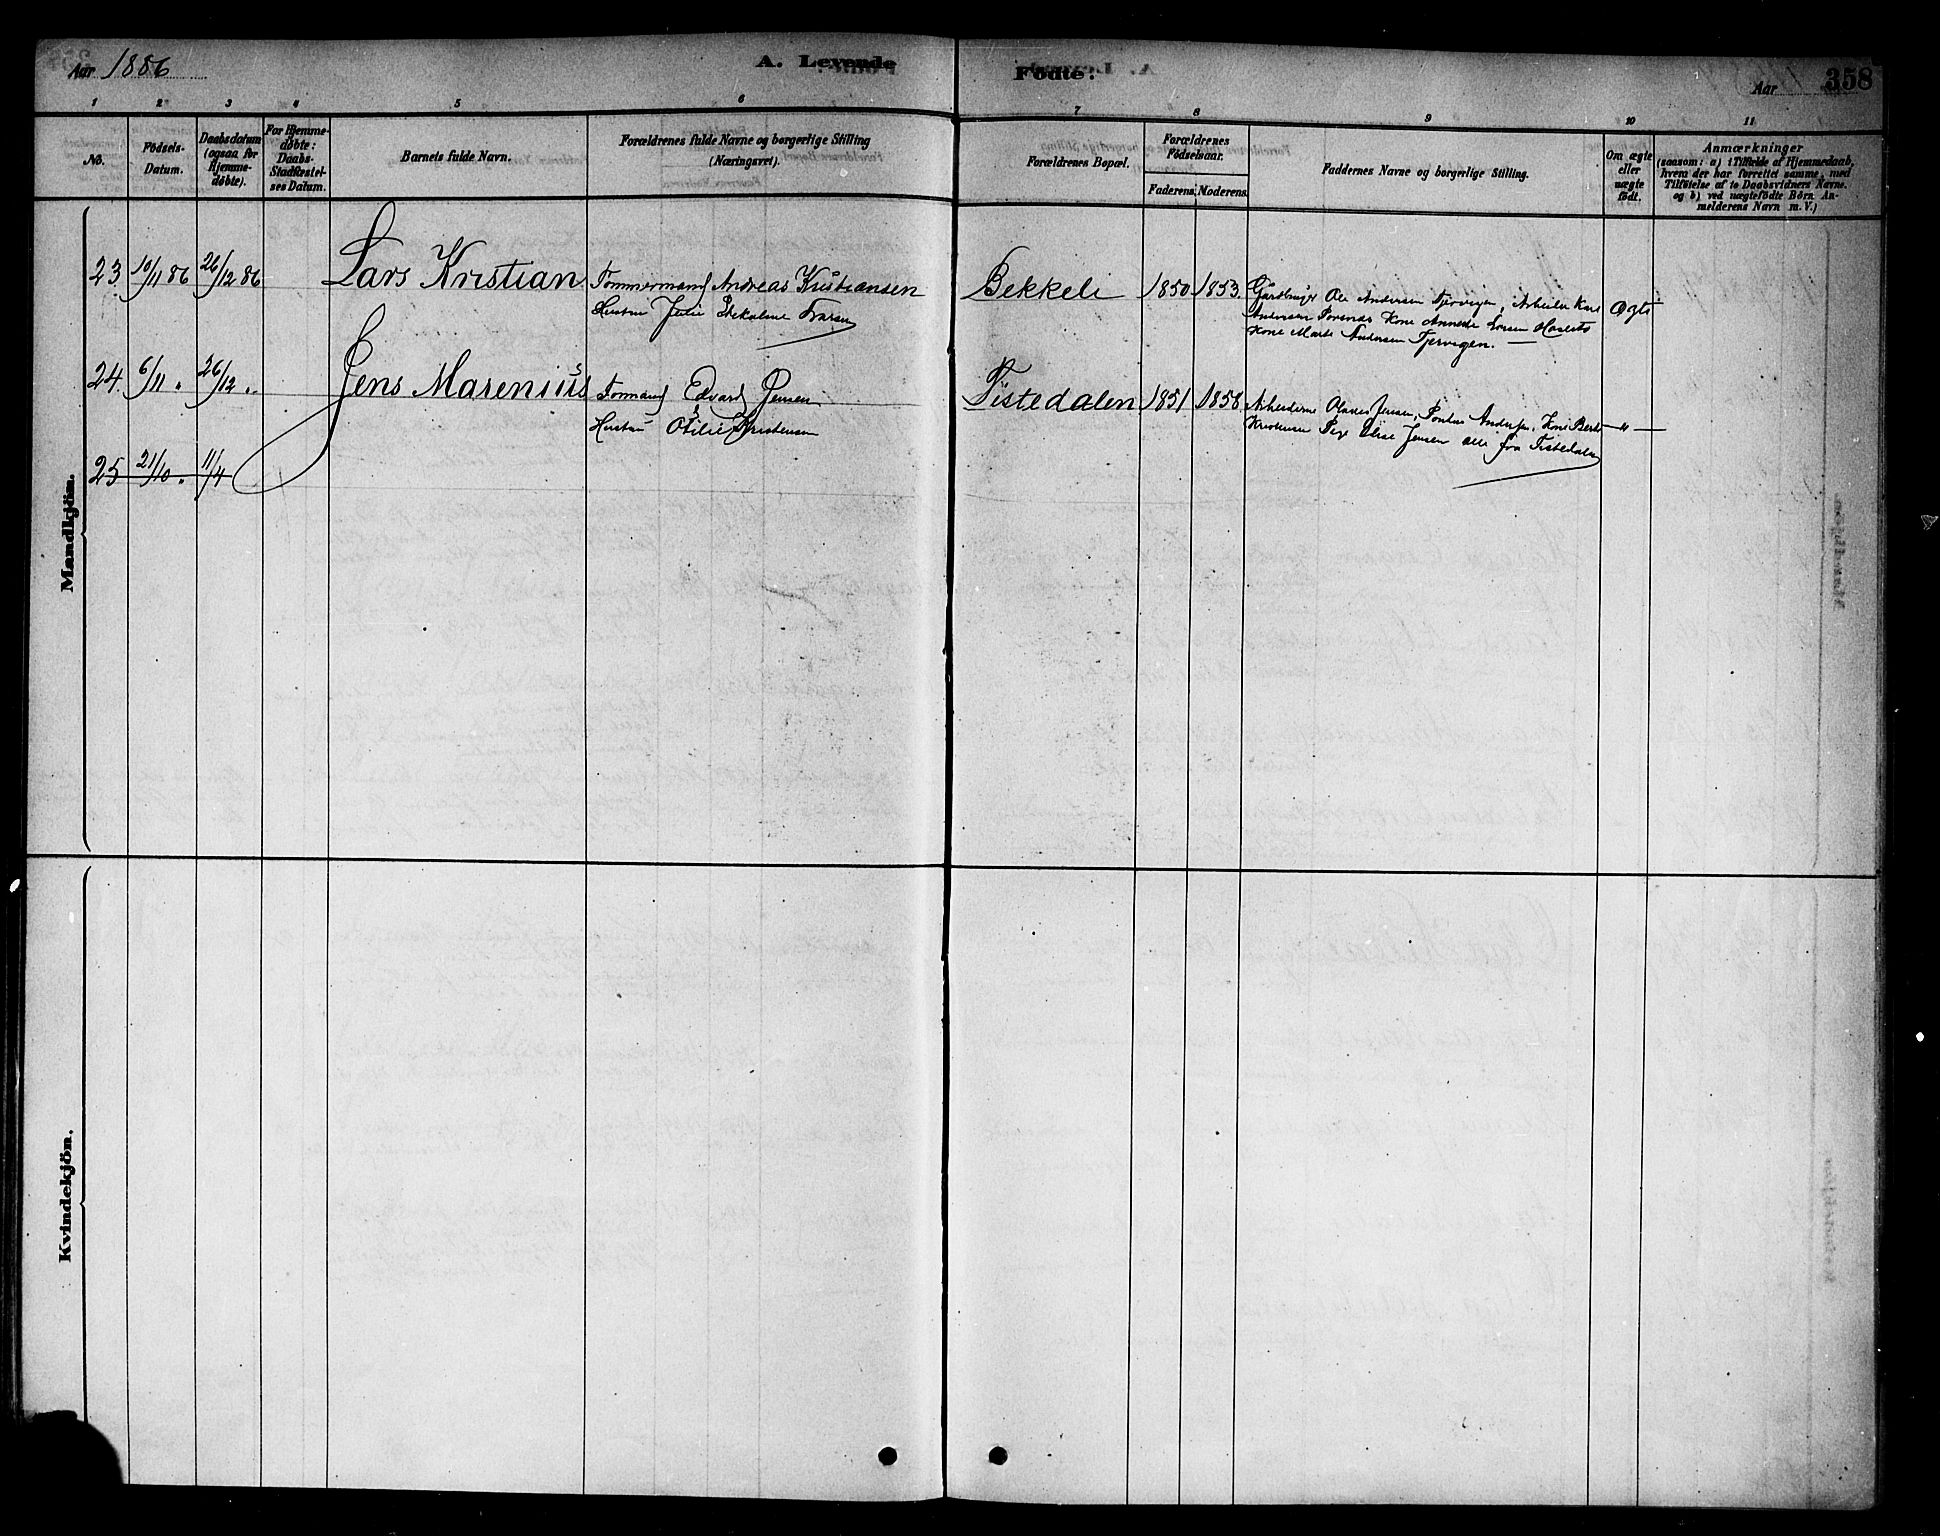 Aar 1886
A. Levende
Fødte.
Aar
358
1 2 3 4 5 6 7 8 9 10 11
No.
Födsels-
Datum.
Daabsdatum
(ogsaa for
Hjemme-
døbte).
For Hjemme-
døbte:
Daabs-
Stadfæstel-
ses Datum.
Barnets fulde Navn.
Forældrenes fulde Navne og borgerlige Stilling
(Næringsvei).
Forældrenes Bopæl.
Forældrenes
Fødselsaar.
Faderens. Moderens.
Faddernes Navne og borgerlige Stilling.
Om ægte
eller
uægte
født.
Anmærkninger
(saasom: a) i Tilfælde af Hjemmedaab,
hvem der har forrettet samme, med
Tilføielse af to Daabsvidners Navne.
og b) ved uægtefødte Børn An-
melderens Navn m. V.)
Mandkjön.
23 10/11 86 26/12 86 Lars Kristian Tømmermand Andreas Kristiansen Bekkeli 1850 1853. Ole Andersen Arbeider Karl Ægte
Hustru Julie Larsen
Andersen Kone Annette Larsen
Kone Marte Andersen
24. 6/11 " 26/12 " Jens Marenius Formand Edvard Jensen Tistedalen 1851 1858 Arbeiderne Olaves Jensen, Kone Berte — " —
Hustru Otilie Kristensen
Kristensen Pige Elise Jensen alle fra Tistedalen
25 21/10 " 11/4
Kvindekjön.